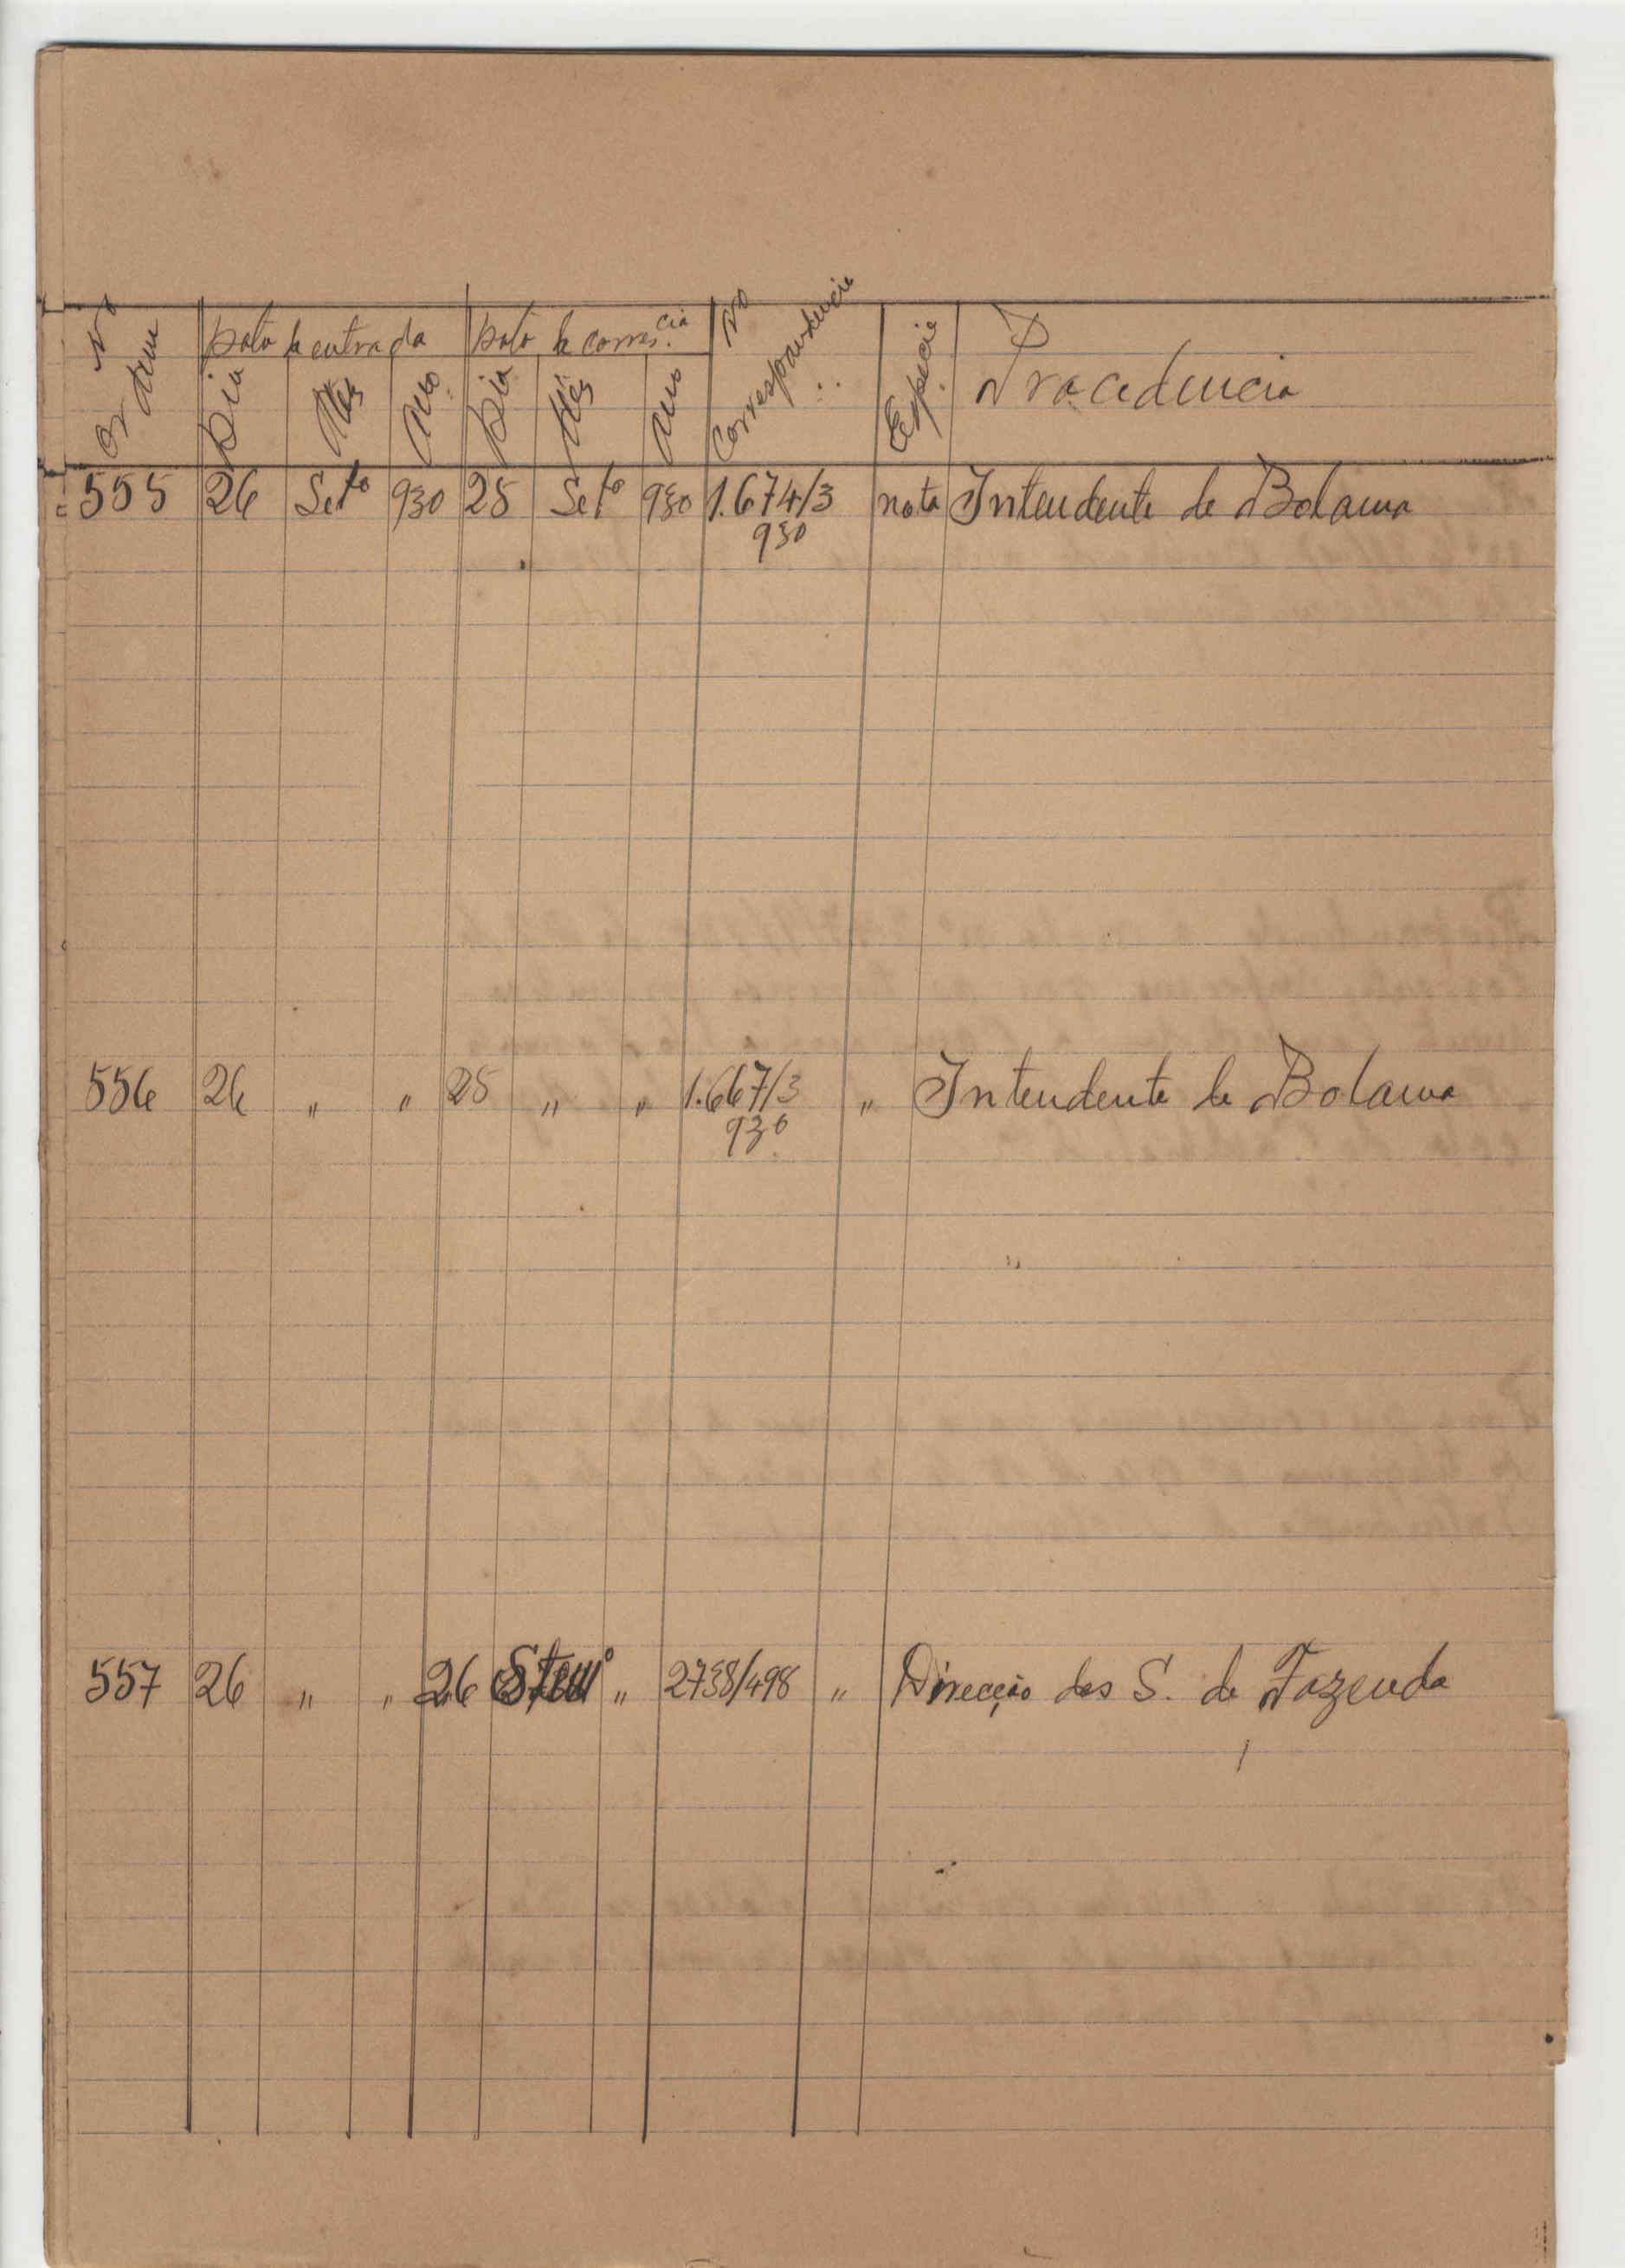 Nº Ordem | Data de entrada | Data de corres.cia | Nº Correspondencia | Especie | Procedencia
Dia | Mês | Ano | Dia | Mês | Ano
555 | 26 | Setº | 930 | 25 | Setº | 930 | 1.674/3 | nota | Intendente de Bolama
930
556 | 26 | " | " | 25 | " | " | 1.667/3 | " | Intendente de Bolama
930
557 | 26 | " | " | 26 | " | 2738/498 | " | Direcção dos S. de Fazenda